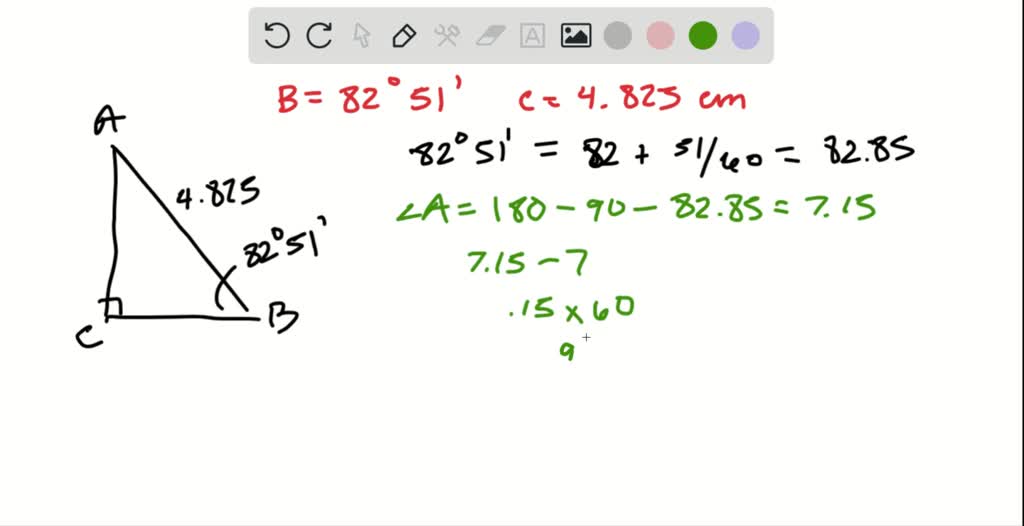 B = 82° 51' c = 4.825 cm
A
82° 51' = 82 + 51/60 = 82.85
4.825
∠A = 180 - 90 - 82.85 = 7.15
82° 51'
7.15 - 7
.15 x 60
B
C
9